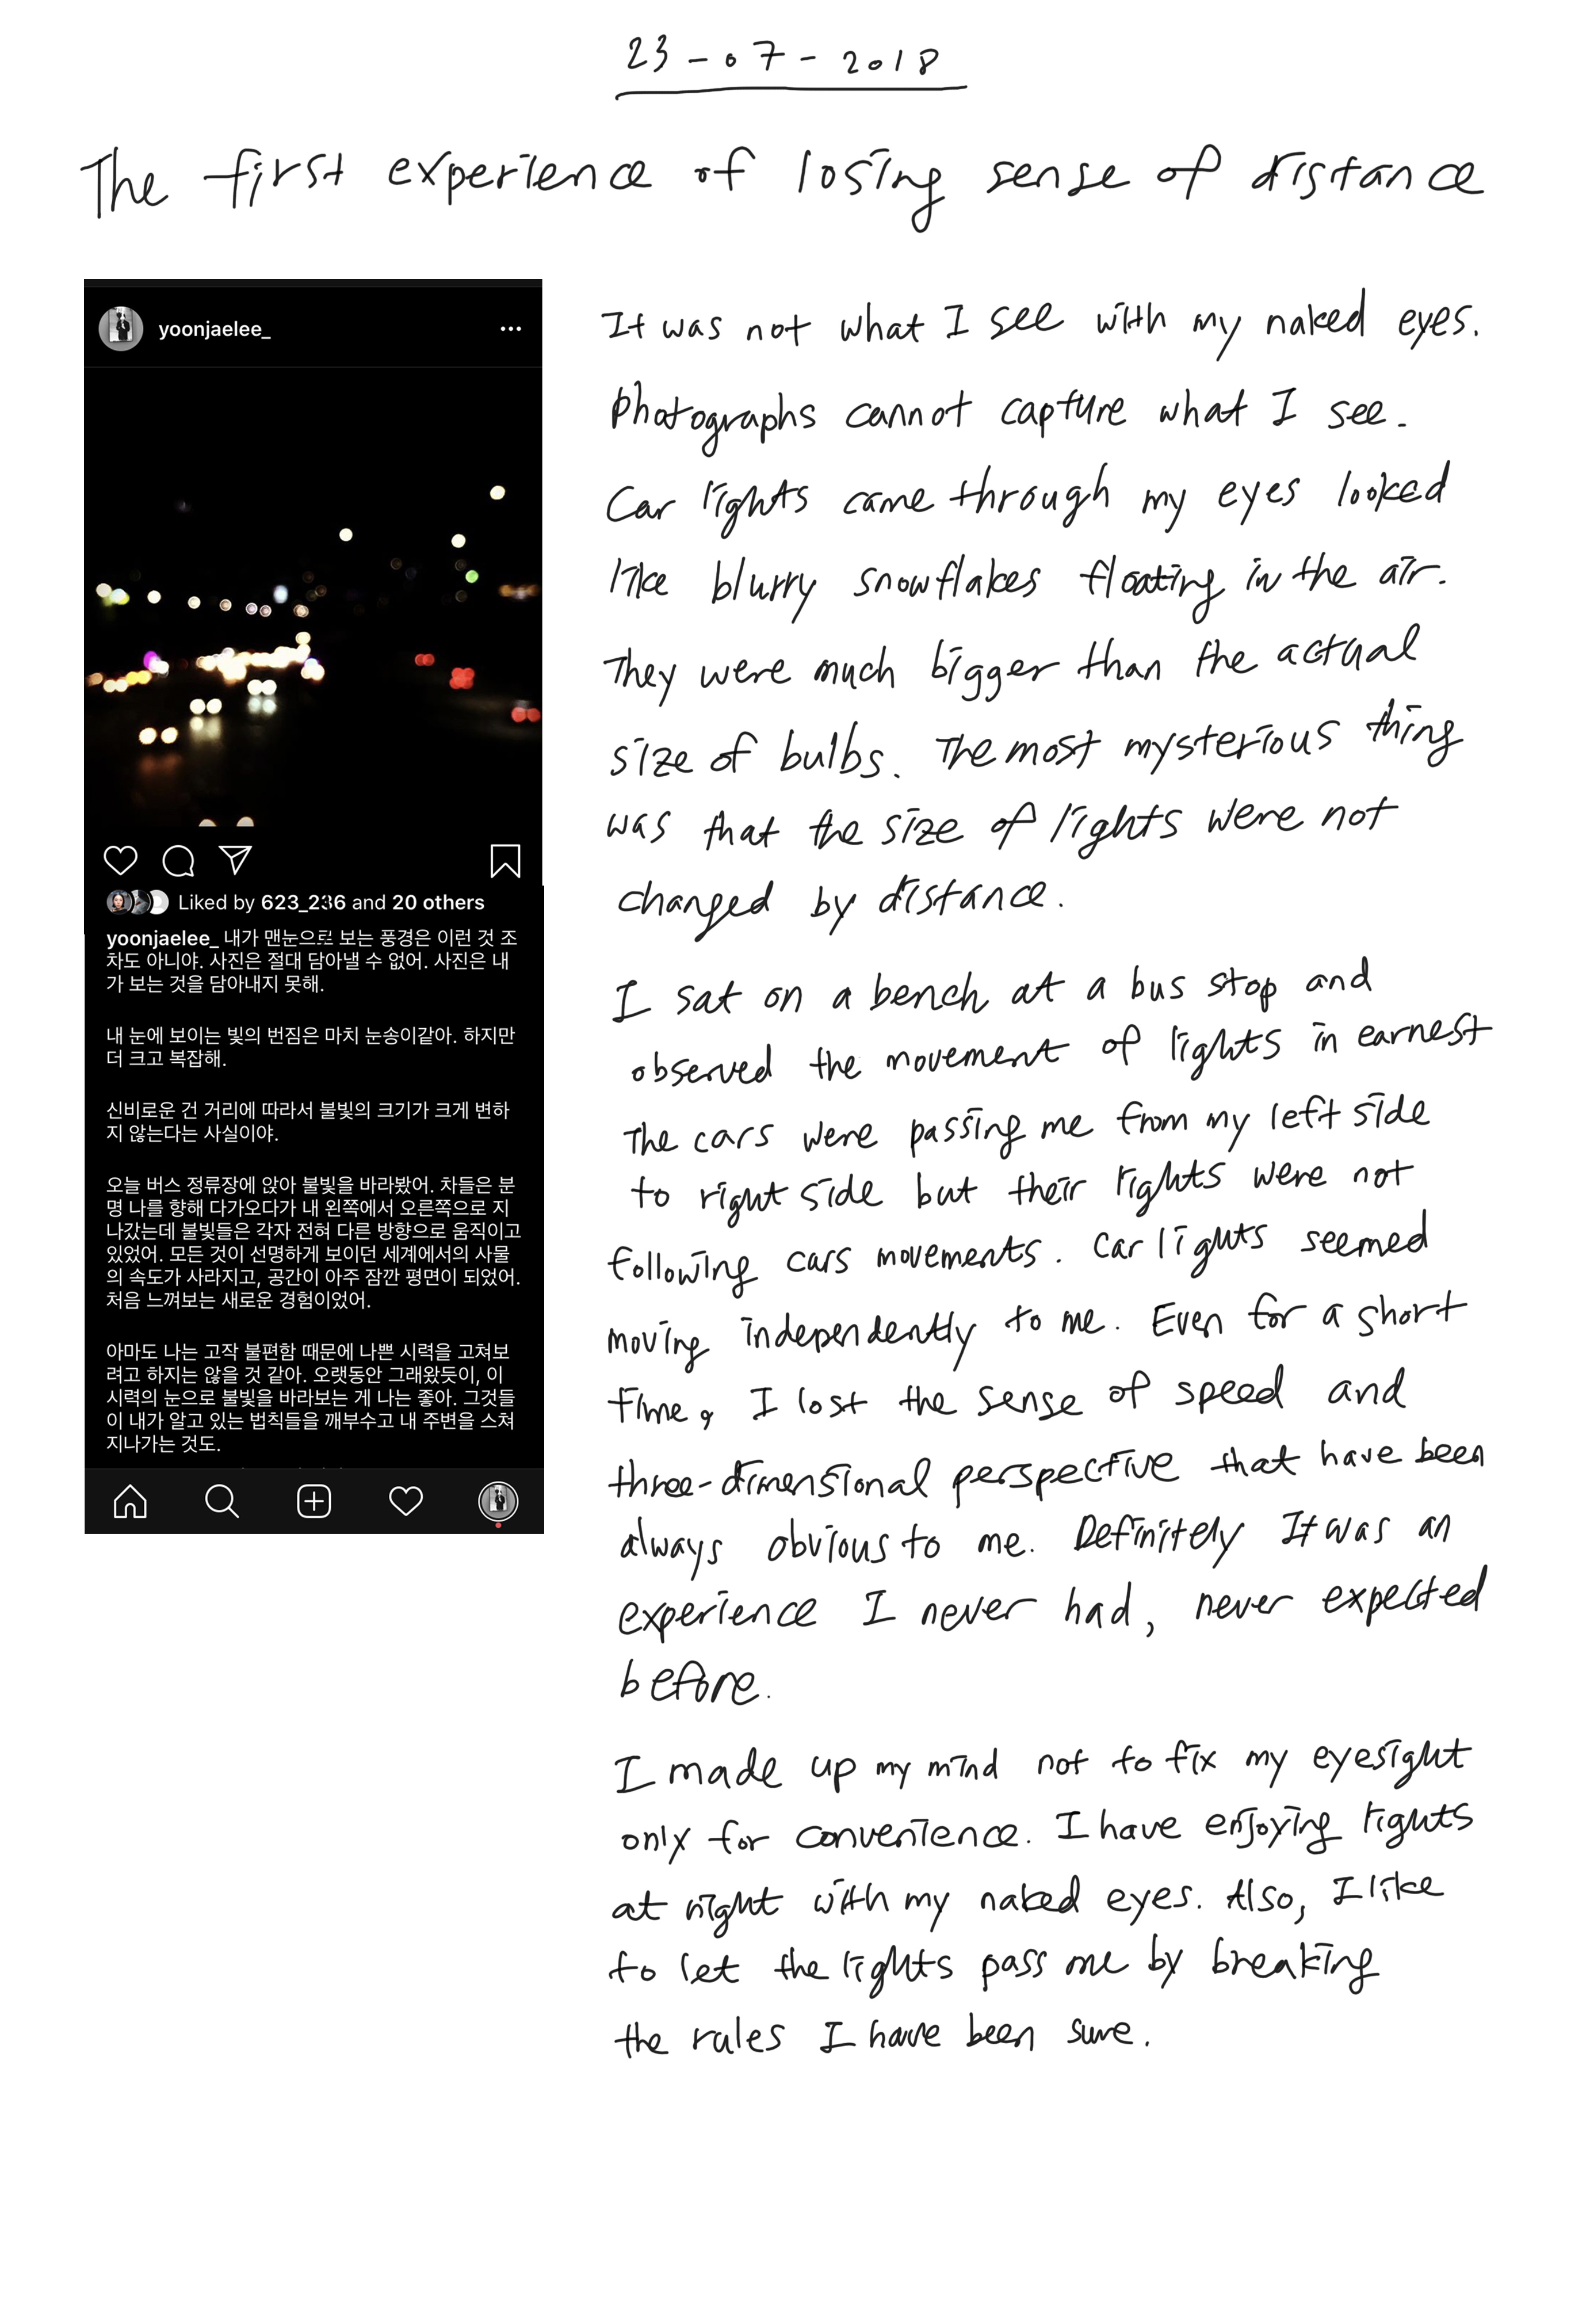 23-07-2018
The first experience of losing sense of distance
yoonjaelee_
Liked by 623_236 and 20 others
yoonjaelee_ 내가 맨눈으로 보는 풍경은 이런 것 조
차도 아니야. 사진은 절대 담아낼 수 없어. 사진은 내
가 보는 것을 담아내지 못해.
내 눈에 보이는 빛의 번짐은 마치 눈송이같아. 하지만
더 크고 복잡해.
신비로운 건 거리에 따라서 불빛의 크기가 크게 변하
지 않는다는 사실이야.
오늘 버스 정류장에 앉아 불빛을 바라봤어. 차들은 분
명 나를 향해 다가오다가 내 왼쪽에서 오른쪽으로 지
나갔는데 불빛들은 각자 전혀 다른 방향으로 움직이고
있었어. 모든 것이 선명하게 보이던 세계에서의 사물
의 속도가 사라지고, 공간이 아주 잠깐 평면이 되었어.
처음 느껴보는 새로운 경험이었어.
아마도 나는 고작 불편함 때문에 나쁜 시력을 고쳐보
려고 하지는 않을 것 같아. 오랫동안 그래왔듯이, 이
시력의 눈으로 불빛을 바라보는 게 나는 좋아. 그것들
이 내가 알고 있는 법칙들을 깨부수고 내 주변을 스쳐
지나가는 것도.
It was not what I see with my naked eyes.
Photographs cannot capture what I see.
Car lights came through my eyes looked
like blurry snowflakes floating in the air.
They were much bigger than the actual
size of bulbs. The most mysterious thing
was that the size of lights were not
changed by distance.
I sat on a bench at a bus stop and
observed the movement of lights in earnest
The cars were passing me from my left side
to right side but their lights were not
following cars movements. Car lights seemed
moving independently to me. Even for a short
time, I lost the sense of speed and
three-dimensional perspective that have been
always obvious to me. Definitely It was an
experience I never had, never expected
before.
I made up my mind not to fix my eyesight
only for convenience. I have enjoying lights
at night with my naked eyes. Also, I like
to let the lights pass me by breaking
the rules I have been sure.